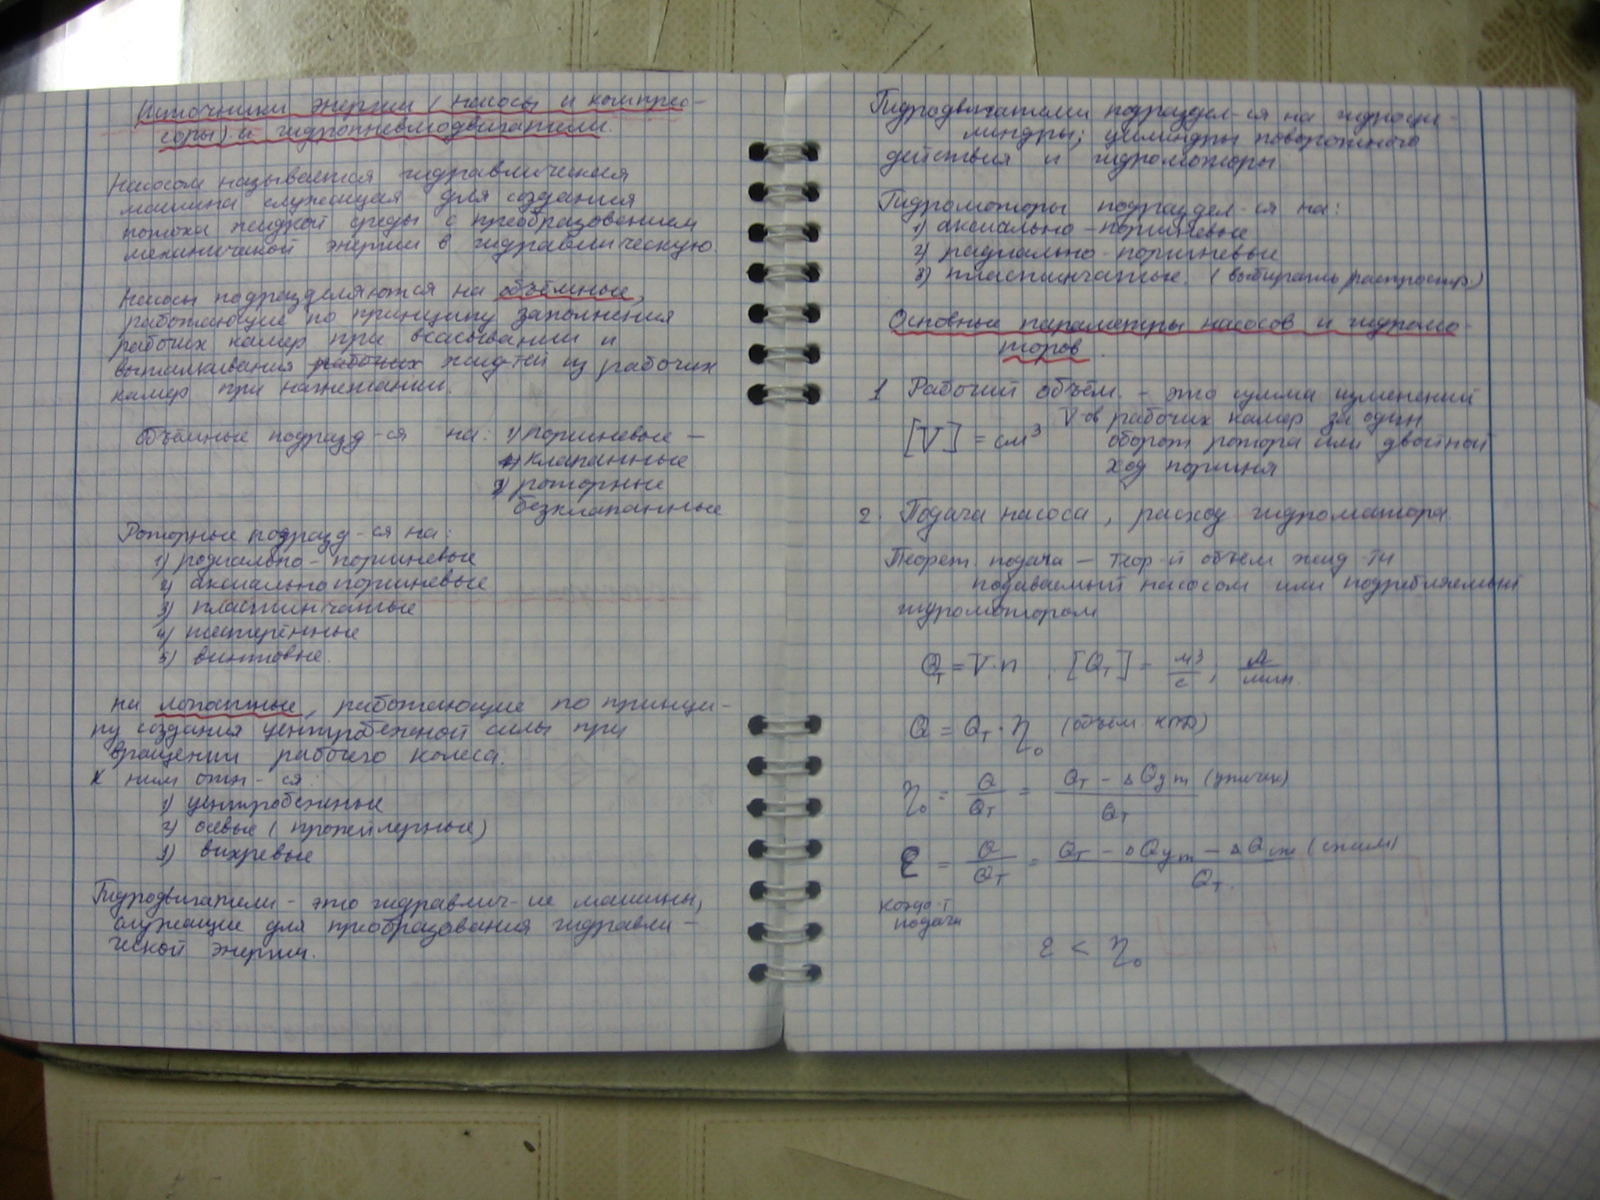 Источники энергии (насосы и компрес-
соры) и гидропневмодвигатели.
Насосом называется гидравлическая
машина служащая для создания
потока жидкой среды с преобразованием
механической энергии в гидравлическую.
Насосы подразделяются на объёмные,
работающие по принципу заполнения
рабочих камер при всасывании и
выталкивания рабочих жид-тей из рабочих
камер при нагнетании.
Объёмные подразд-ся на: 1) поршневые –
клапанные
2) роторные
безклапанные
Роторные подразд-ся на:
1) радиально-поршневые
2) аксиально поршневые
3) пластинчатые
4) шестерённые
5) винтовые.
на лопастные, работающие по принци-
пу создания центробежной силы при
вращении рабочего колеса.
К ним отн-ся:
1) центробежные
2) осевые (пропеллерные)
3) вихревые
Гидродвигатели - это гидравлич-ие машины,
служащие для преобразования гидравли-
ческой энергии.
Гидродвигатели подраздел-ся на гидроци-
линдры; цилиндры поворотного
действия и гидромоторы
Гидромоторы подраздел-ся на:
1) аксиально-поршневые
2) радиально-поршневые
3) пластинчатые.
Основные параметры насосов и гидромо-
торов.
1 Рабочий объём. - это сумма изменений
V-ов рабочих камер за один
[V] = см³ оборот ротора или двойной
ход поршня
2. Подача насоса, расход гидромотора.
Теорет. подача – теор-й объём жид-ти
подаваемый насосом или подребляемый
гидромотором
Qт = V·n . [Qт] = м³/с ; л/мин.
Q = Qт · η₀ (объём КПД)
η₀ = Q/Qт = (Qт - ΔQут (утечек))/Qт
ε = Q/Qт = (Qт - ΔQут - ΔQсж (сжим))/Qт.
коэф-т
подачи
ε < η₀